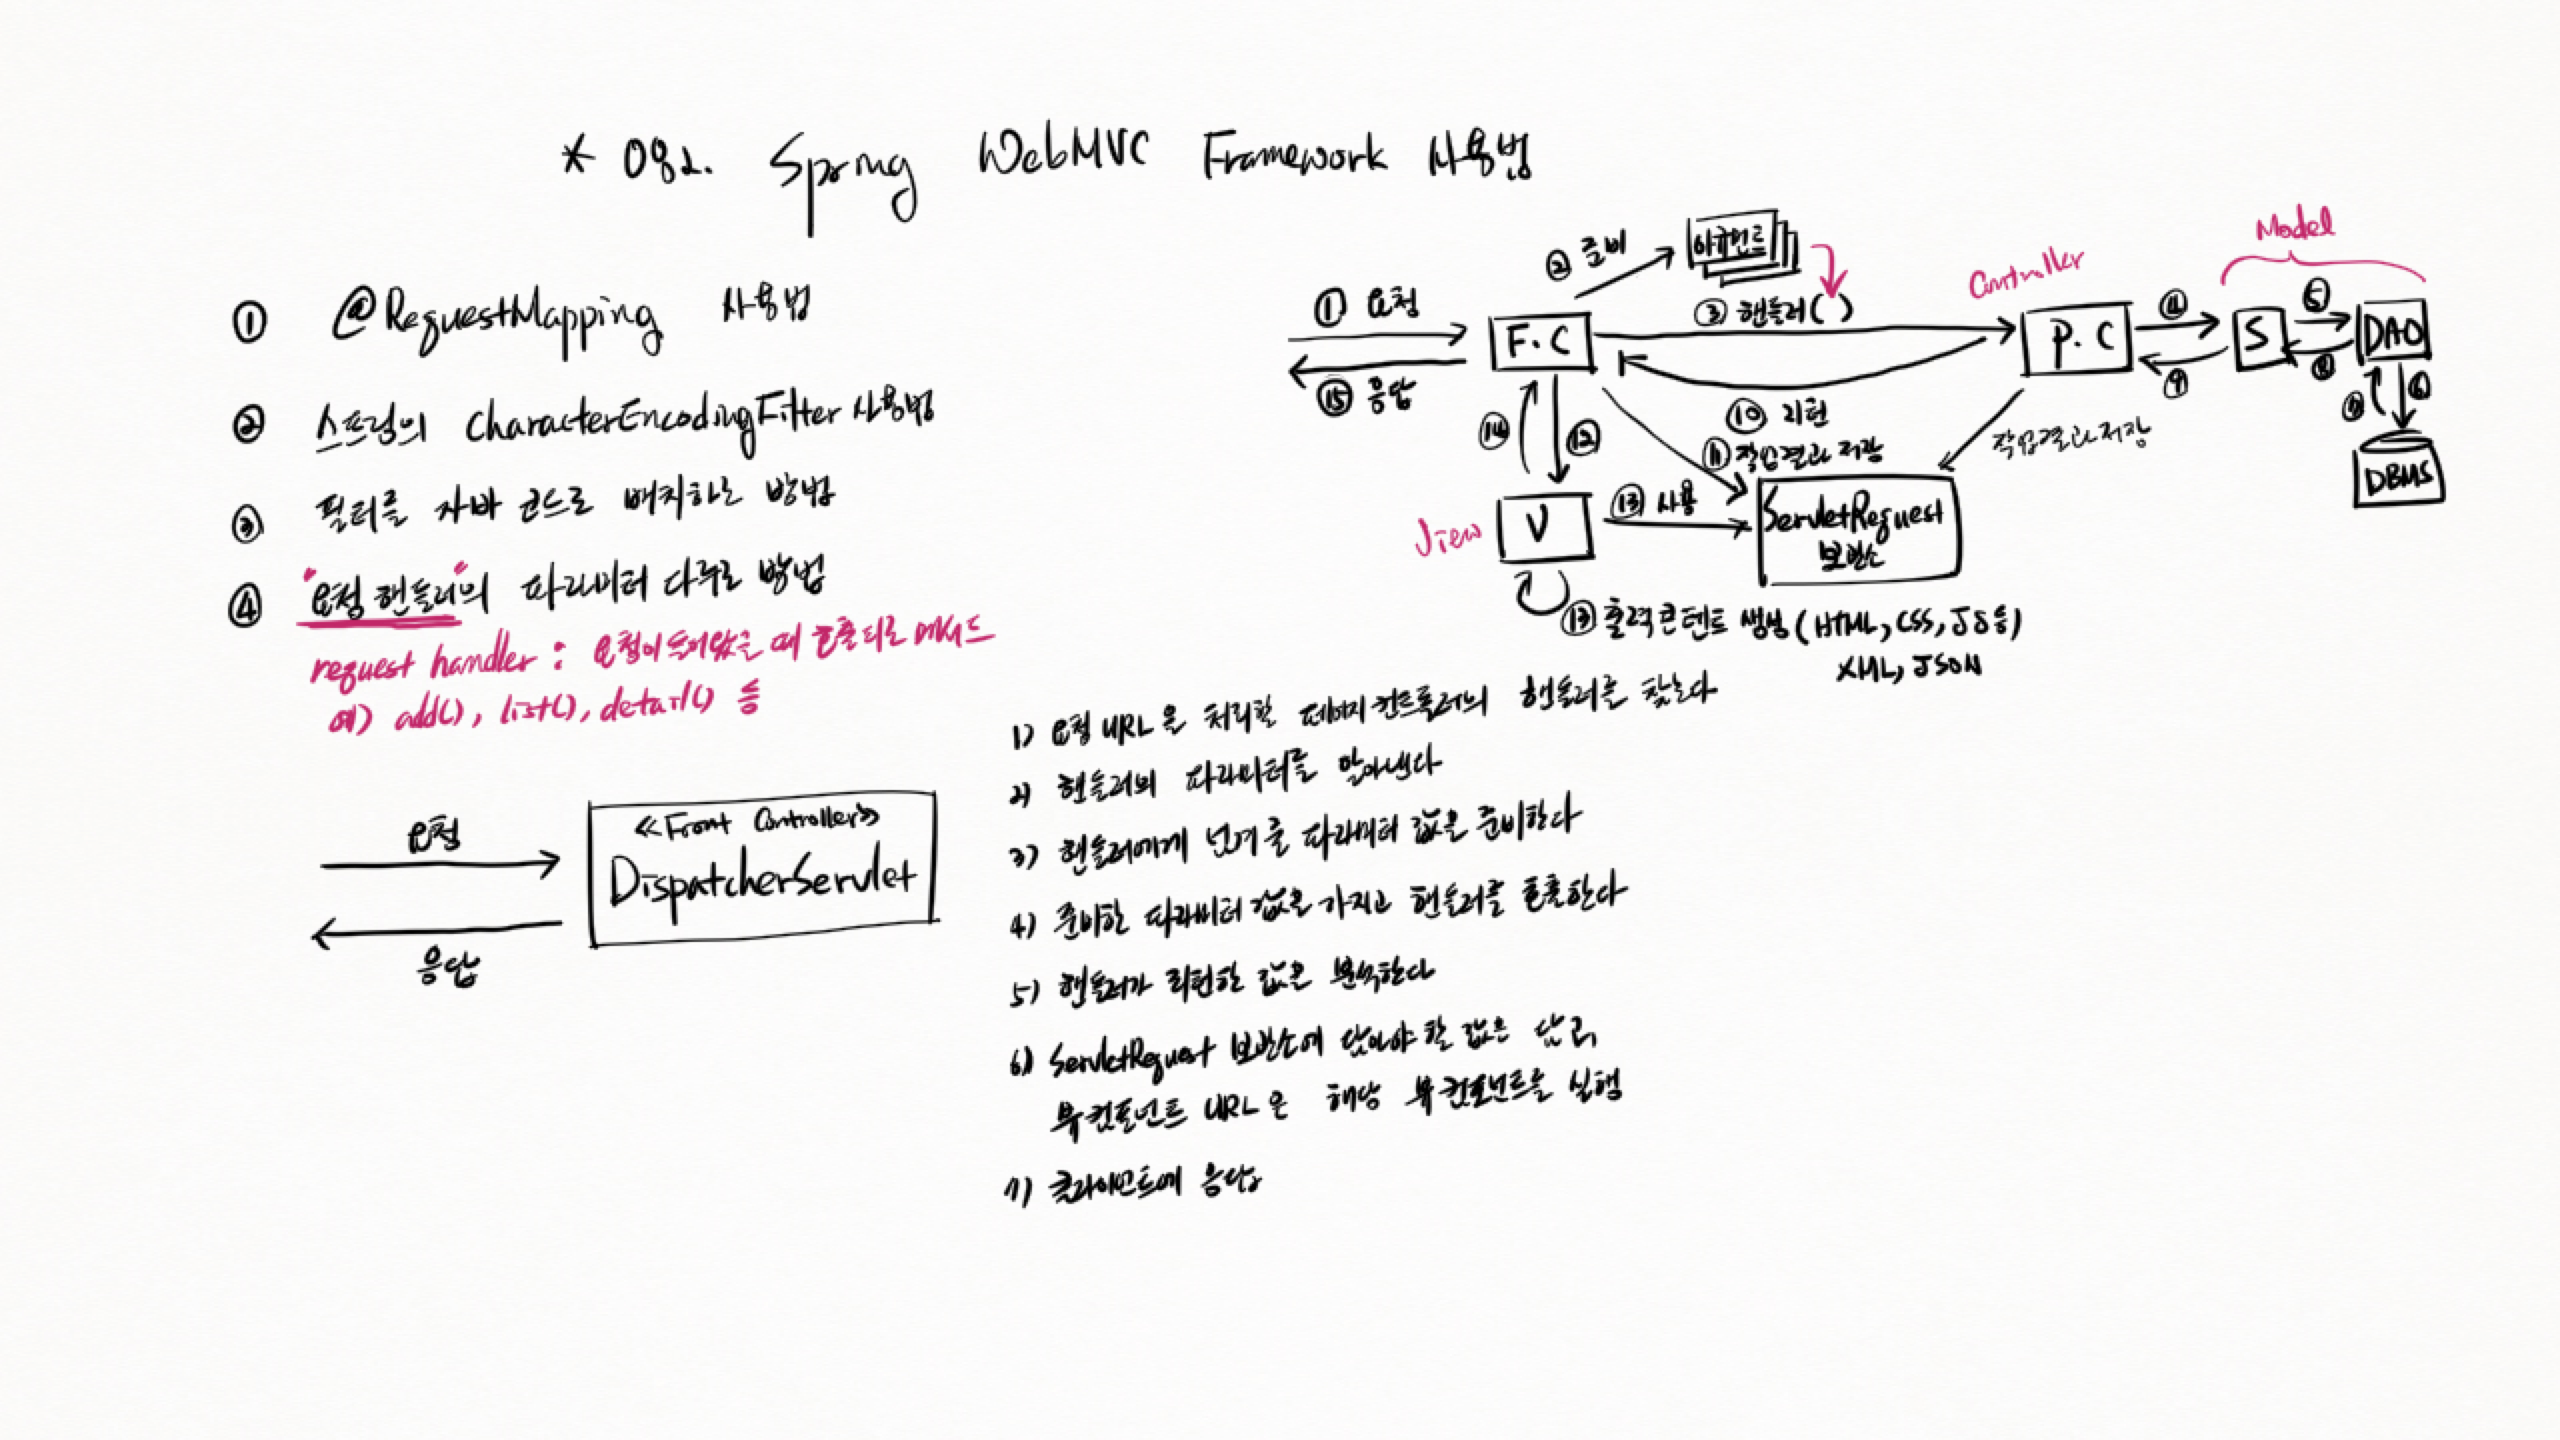 * 082. Spring WebMVC Framework 사용법
① @RequestMapping 사용법
② 스프링의 CharacterEncodingFilter 사용법
③ 필터를 자바 코드로 배치하는 방법
④ "요청 핸들러"의 파라미터 다루는 방법
request handler : 요청이 들어왔을 때 호출되는 메서드
예) add(), list(), detail() 등
요청
<<Front Controller>>
DispatcherServlet
응답
① 요청
⑮ 응답
② 준비
아규먼트
③ 핸들러( )
F.C
Controller
P.C
Model
④
⑨
S
⑤
⑧
DAO
⑦
⑥
DBMS
⑩ 리턴
⑪ 작업결과 저장
작업결과 저장
⑭
⑫
View
V
⑬ 사용
ServletRequest
보관소
⑬ 출력 콘텐트 생성 (HTML, CSS, JS 등)
XML, JSON
1) 요청 URL을 처리할 페이지 컨트롤러의 핸들러를 찾는다
2) 핸들러의 파라미터를 알아낸다
3) 핸들러에게 넘겨줄 파라미터 값을 준비한다
4) 준비한 파라미터 값을 가지고 핸들러를 호출한다
5) 핸들러가 리턴한 값을 분석한다
6) ServletRequest 보관소에 담아야 할 값은 담고,
뷰 컴포넌트 URL은 해당 뷰 컴포넌트를 실행
7) 클라이언트에 응답